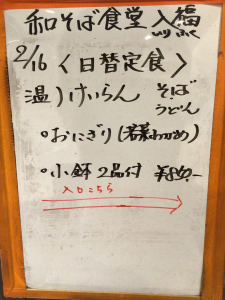 和そば食堂 入福
いり ふく
2/16 〈日替定食〉
温)けいらん そば
うどん
○おにぎり(若芽わかめ)
○小鉢 2品付 ¥850.-
入口こちら